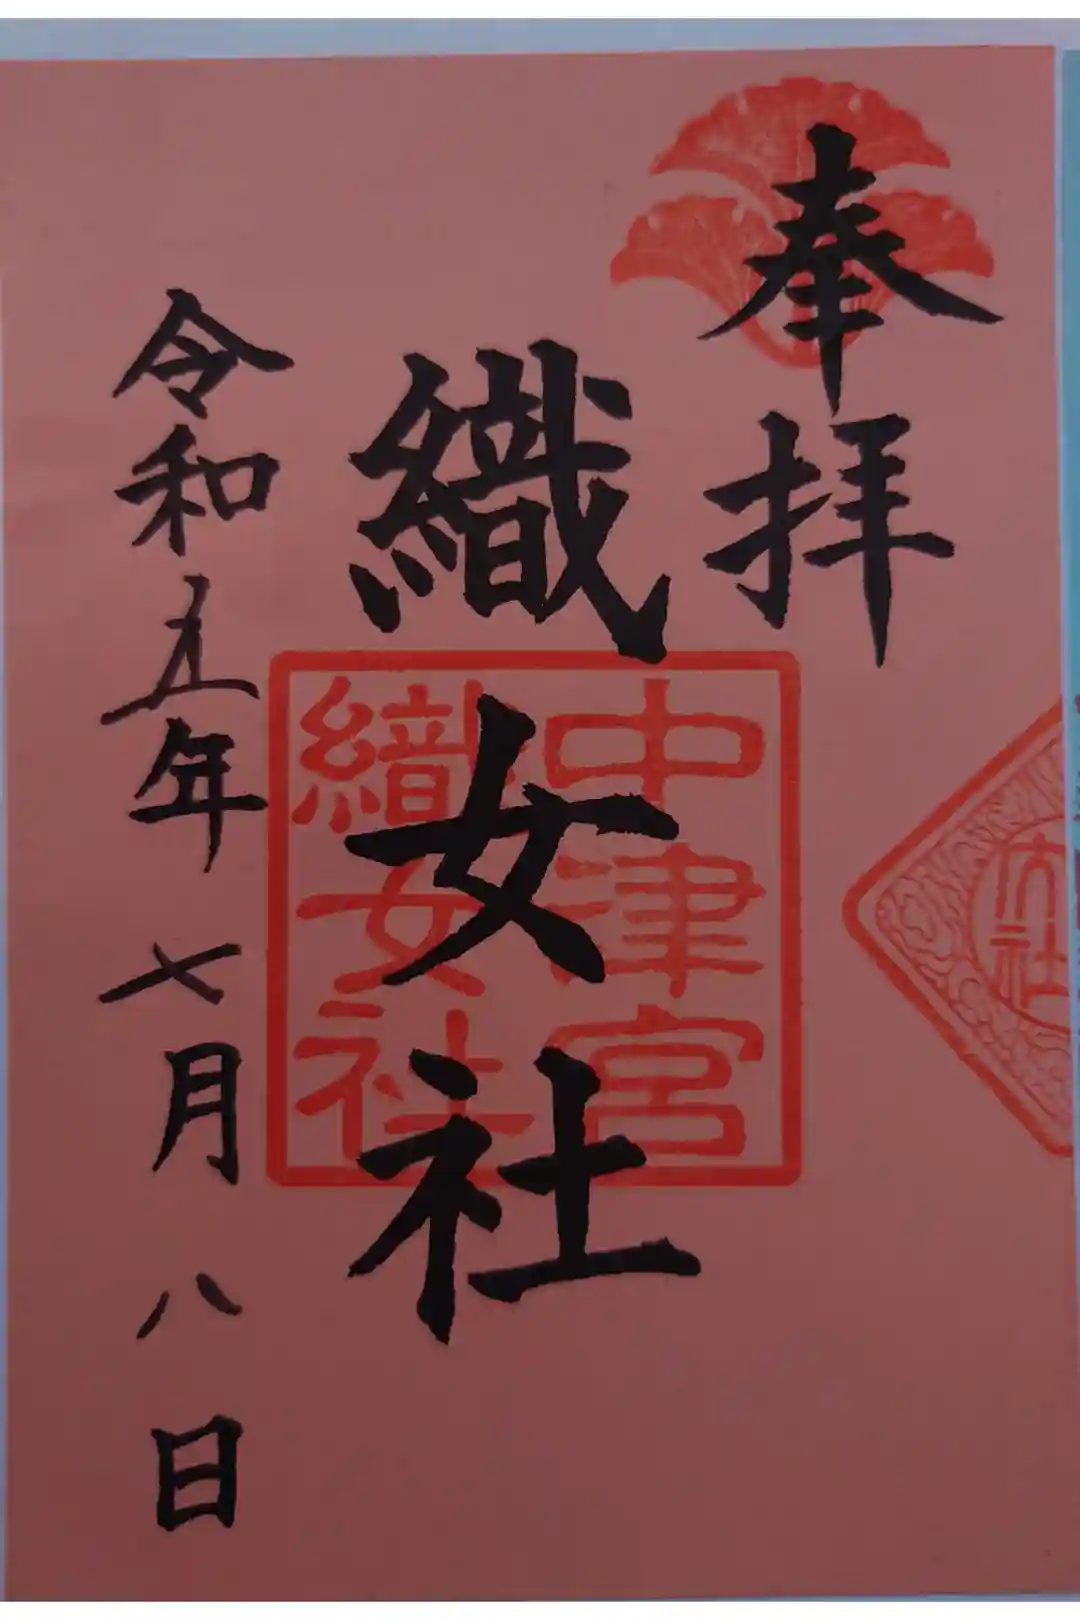 奉拝
織女社
令和五年七月八日
中津宮
織女社
六社